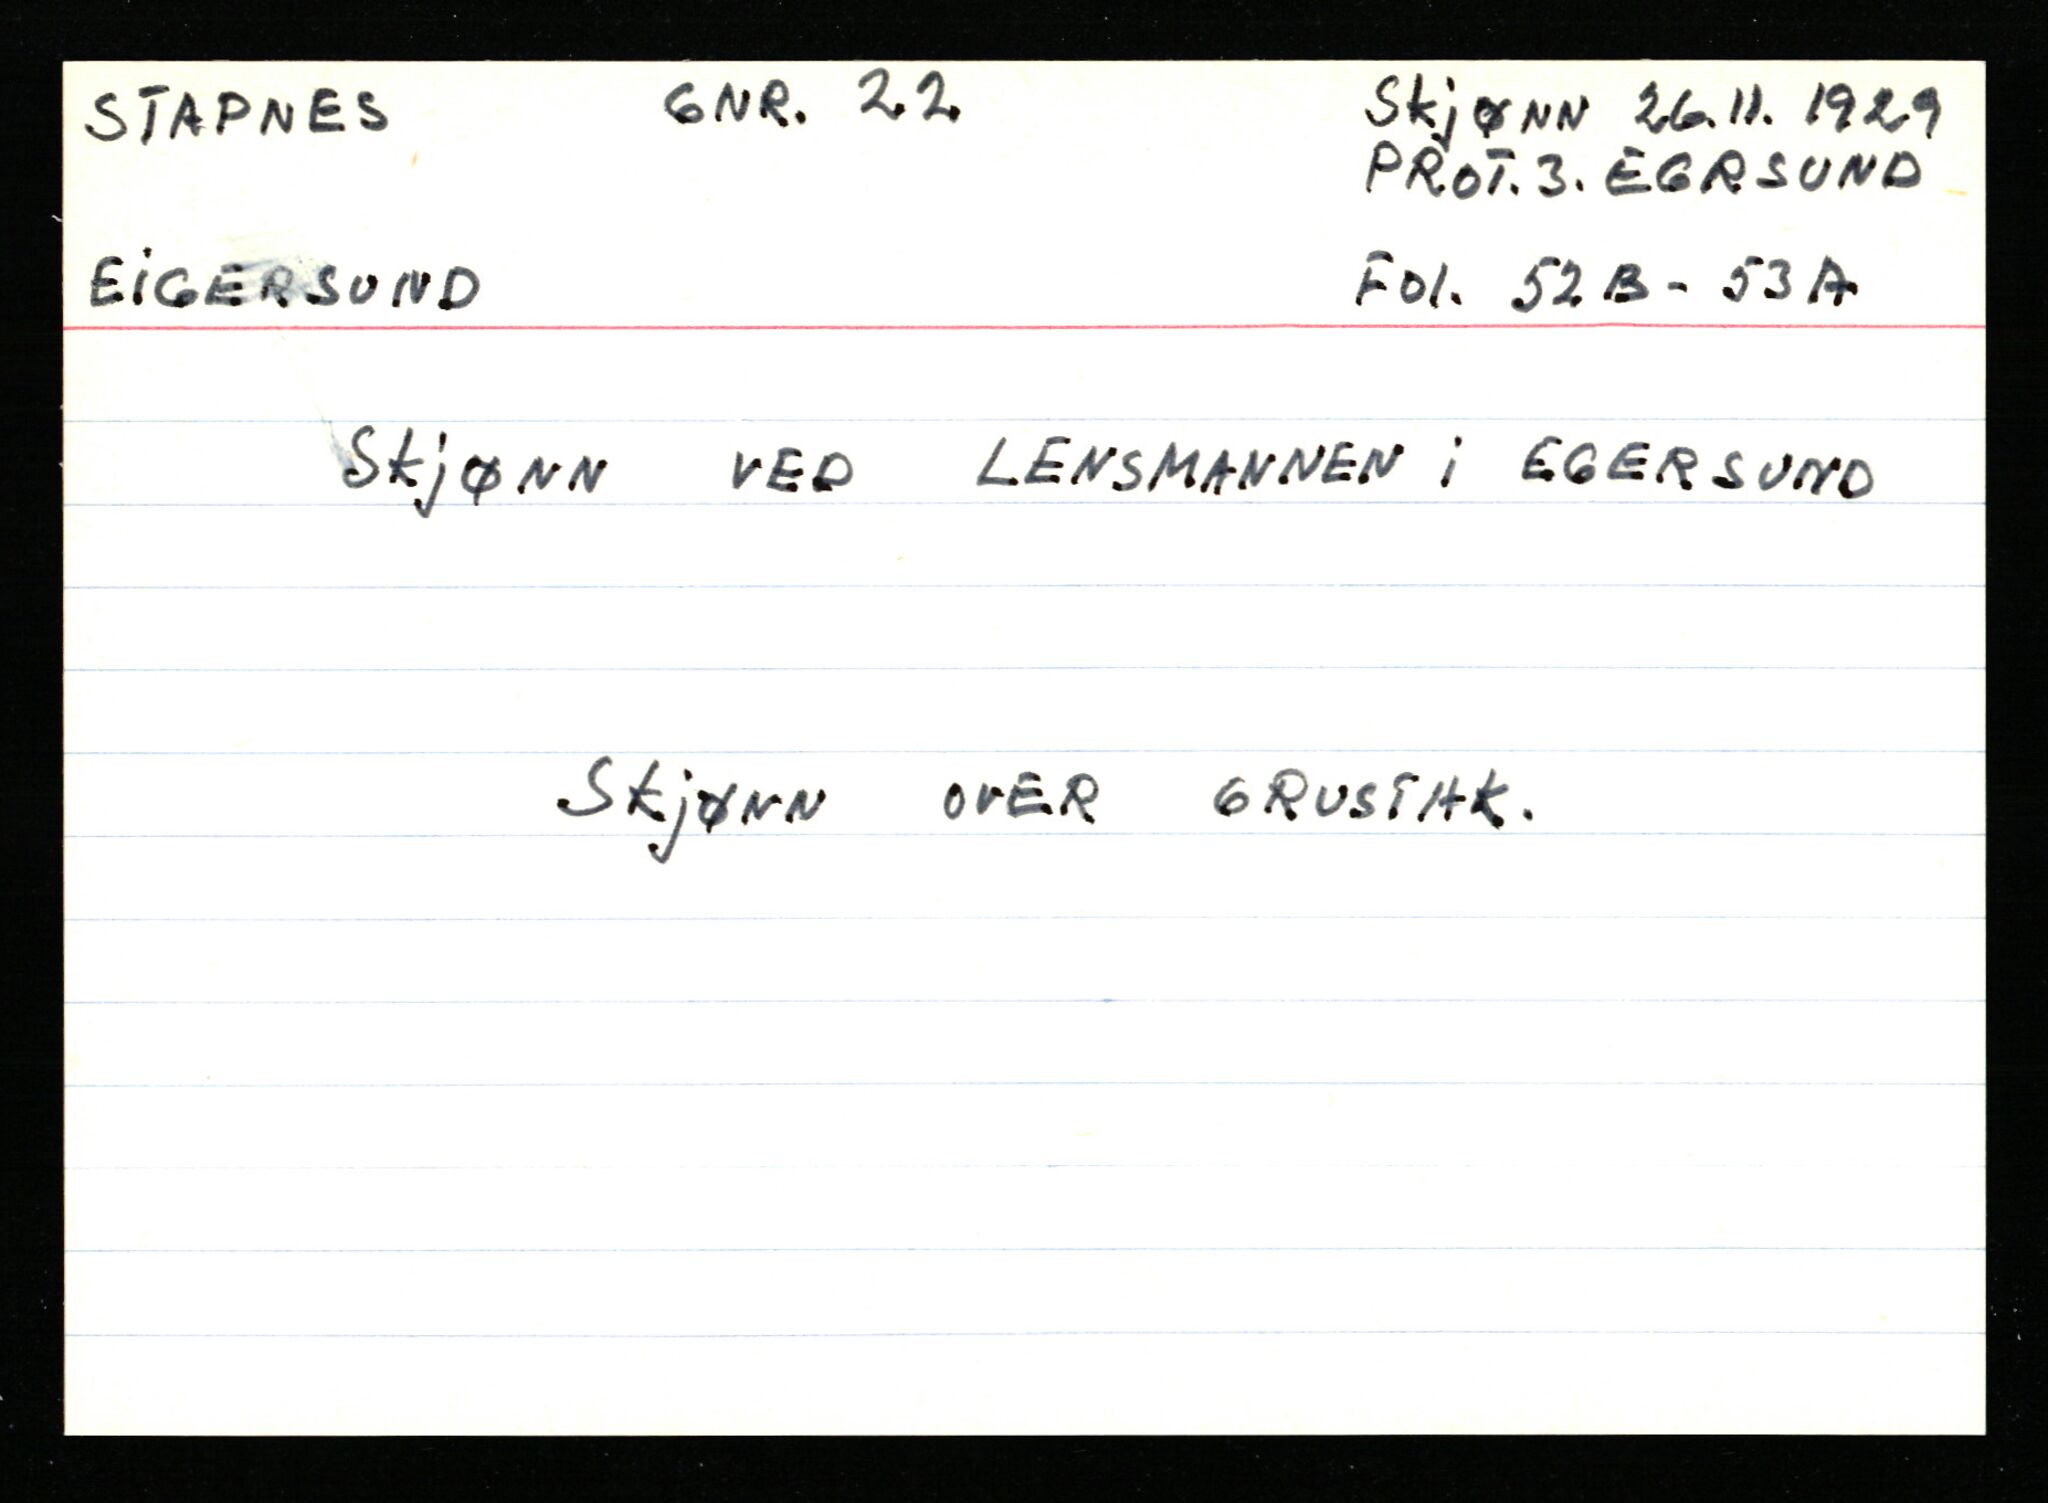 STAPNES GNR. 22 Skjønn 26.11. 1929
PROT. 3. EGRSUND
EIGERSUND Fol. 52 B - 53 A
Skjønn VED LENSMANNEN i EGERSUND
Skjønn OVER GRUSTAK.